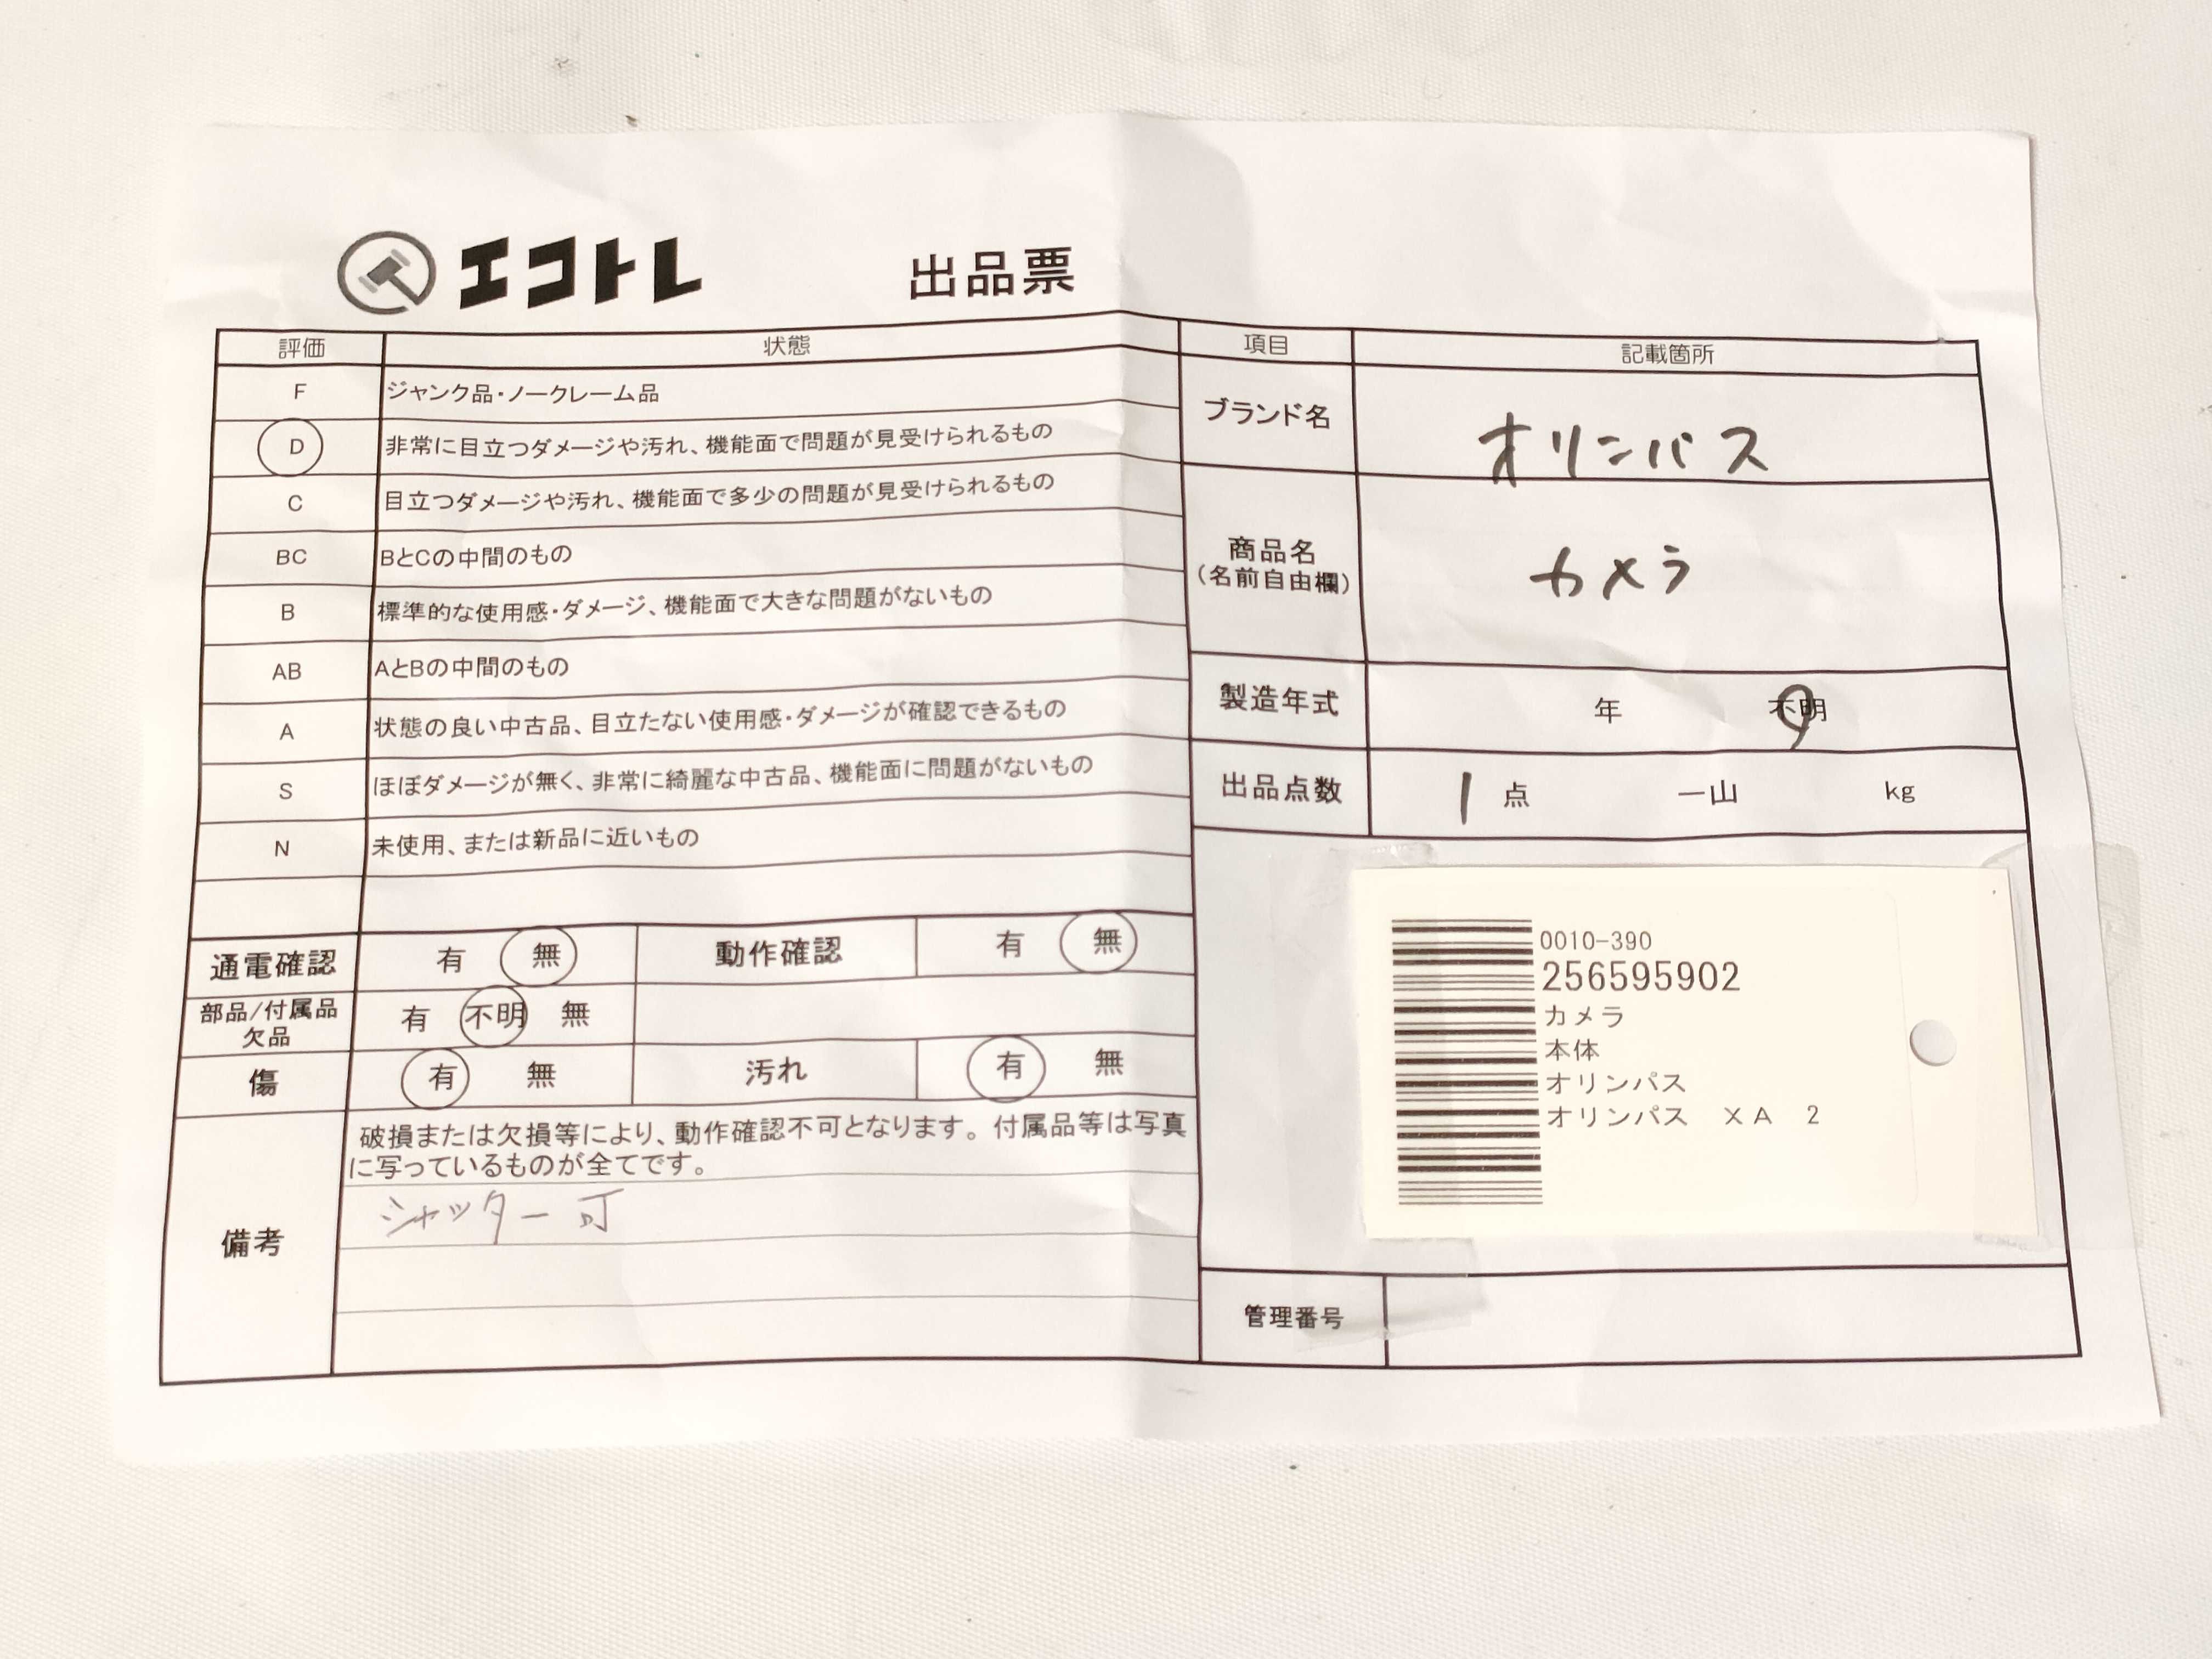 エコトレ 出品票
評価 状態
F ジャンク品・ノークレーム品
D 非常に目立つダメージや汚れ、機能面で問題が見受けられるもの
C 目立つダメージや汚れ、機能面で多少の問題が見受けられるもの
BC BとCの中間のもの
B 標準的な使用感・ダメージ、機能面で大きな問題がないもの
AB AとBの中間のもの
A 状態の良い中古品、目立たない使用感・ダメージが確認できるもの
S ほぼダメージが無く、非常に綺麗な中古品、機能面に問題がないもの
N 未使用、または新品に近いもの
通電確認 有 無 動作確認 有 無
部品/付属品
欠品
有 不明 無
傷 有 無 汚れ 有 無
備考
破損または欠損等により、動作確認不可となります。付属品等は写真
に写っているものが全てです。
シャッター可
項目 記載箇所
ブランド名 オリンパス
商品名
(名前自由欄)
カメラ
製造年式 年 不明
出品点数 1 点 一山 kg
0010-390
256595902
カメラ
本体
オリンパス
オリンパス XA 2
管理番号